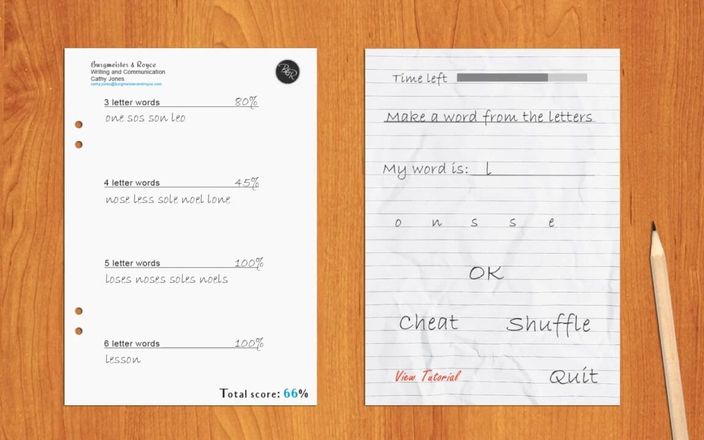 Burgmeister & Royce
Writing and Communication
Cathy Jones
cathy.jones@burgmeisterandroyce.com
B&R
3 letter words 80%
one sos son leo
4 letter words 45%
nose less sole noel lone
5 letter words 100%
loses noses soles noels
6 letter words 100%
lesson
Total score: 66%
Time left
Make a word from the letters
My word is: l
o n s s e
OK
Cheat Shuffle
View Tutorial Quit